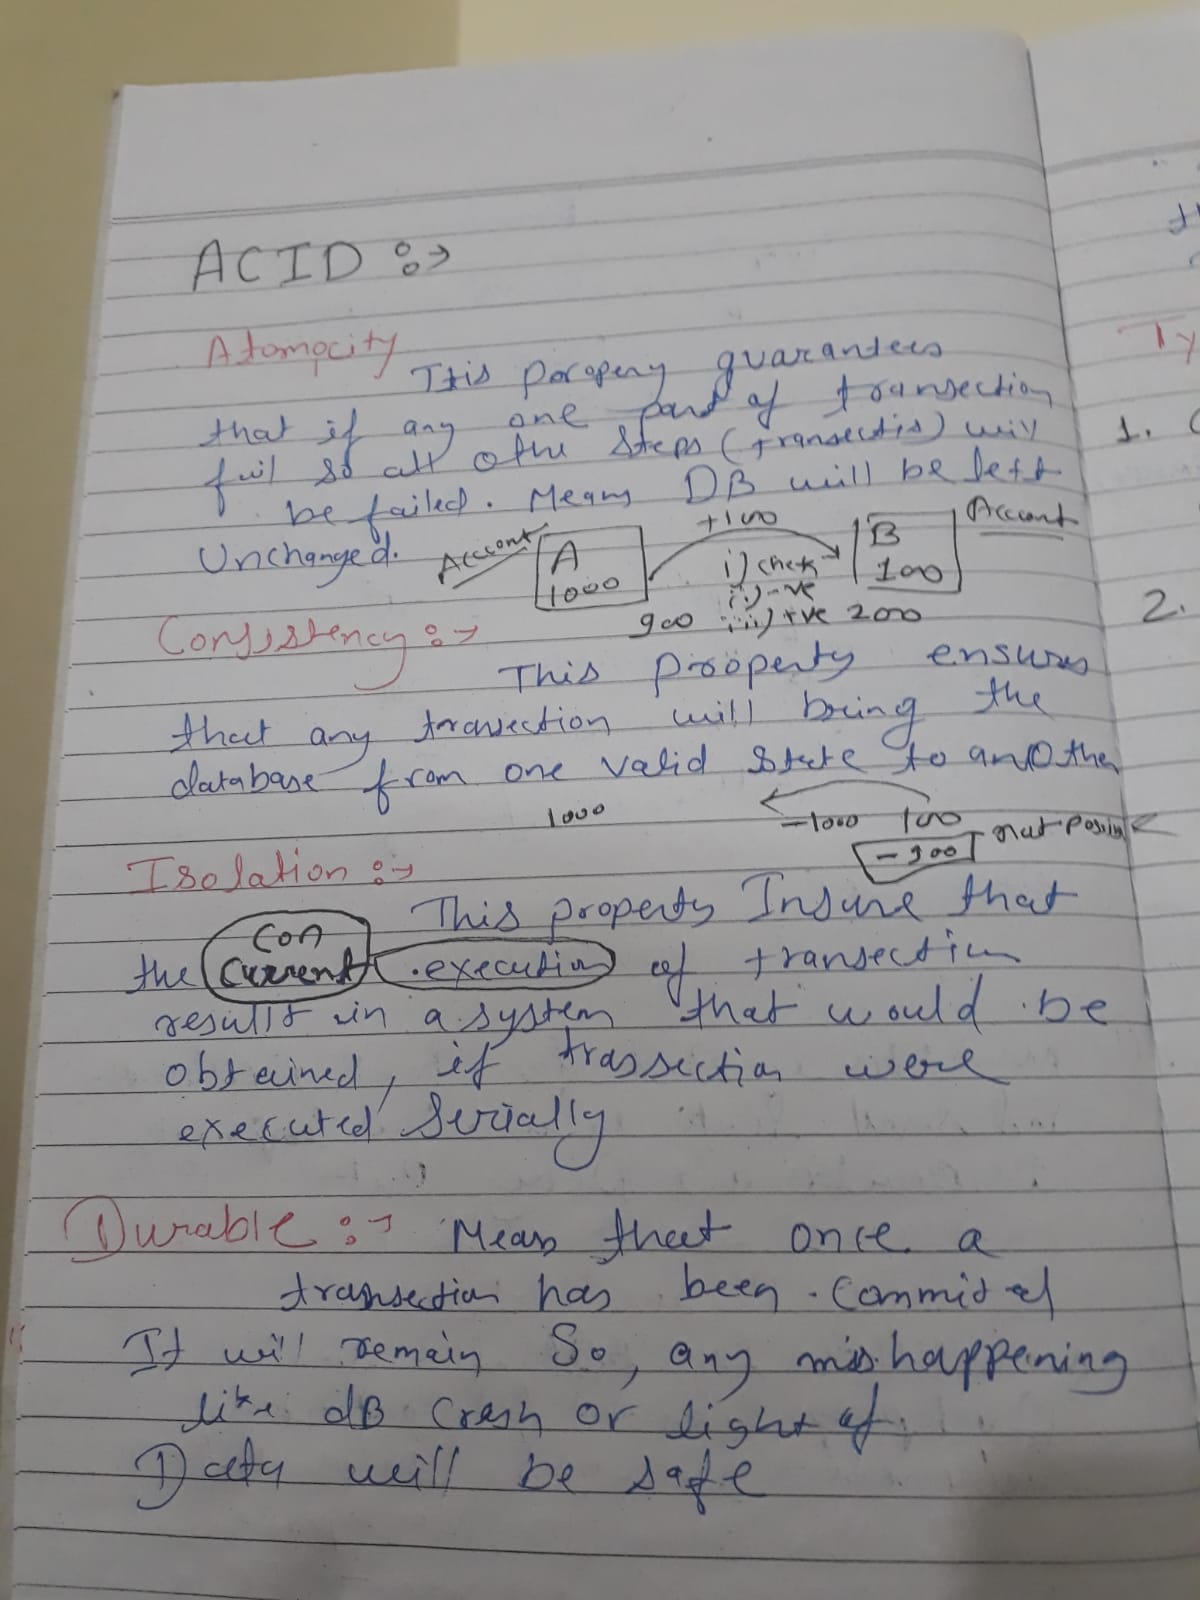 ACID :->
Atomocity
This poropery guarantees
that if any one part of transection
fail so all othe steps (transectis) will
be failed. Means DB will be left
Unchanged.
Account A 1000
+100
B 100 Account
i) check
ii) -ve
900 iii) +ve 200
Consistency :->
This proöperty ensures
that any transection will bring the
database from one valid state to another
1000
-1000 100
-900 not Possible
Isolation :->
This property Insure that
the Con
Current execution of transection
result in a system that would be
obtained, if trassection were
executed Serially
Durable :-> Means that once a
transection has been Commited
It will remain So, any mishappening
like dB Crash or light of.
Data will be safe
Ty
1.
2.